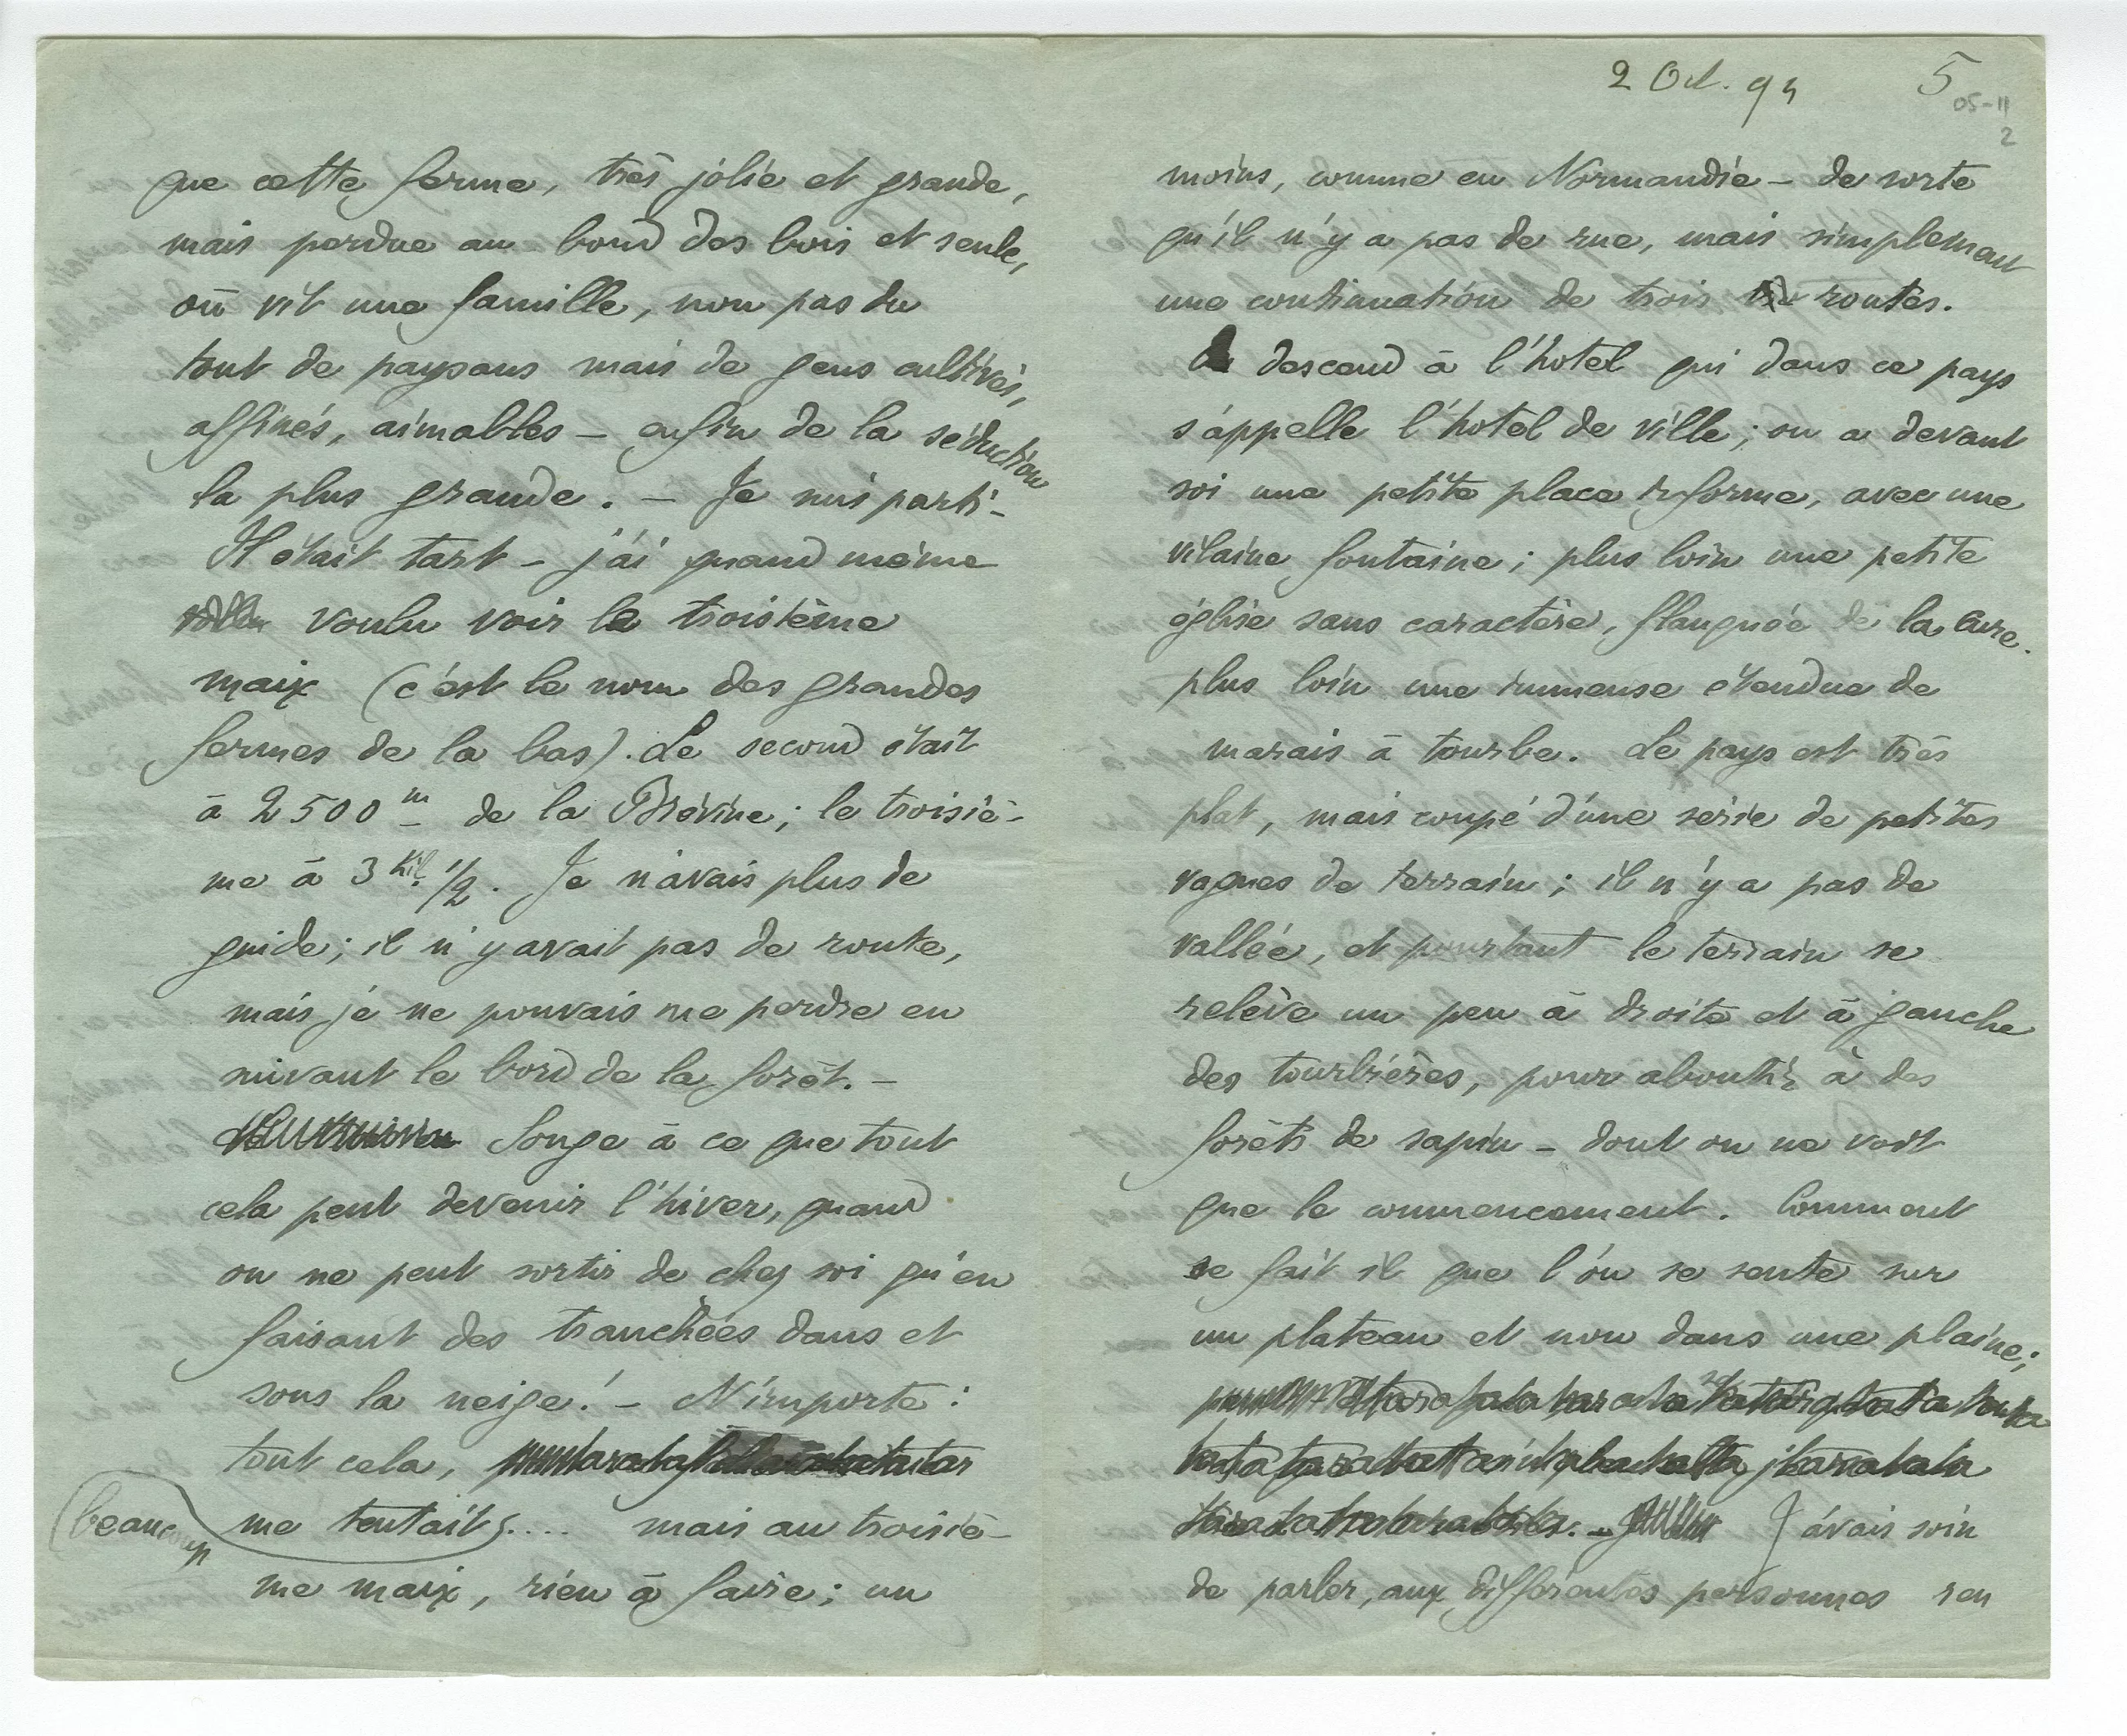 que cette ferme, très jolie et grande,
mais perdue au bord des bois et seule,
où vit une famille, non pas du
tout de paysans mais de gens cultivés,
affinés, aimables – enfin de la séduction
la plus grande. – Je suis parti –
Il était tart – j'ai quand même
voulu voir le troisième
maix (c'est le nom des grandes
fermes de la bas). Le second était
à 2500 m de la Brévine; le troisiè-
me à 3 Kil. 1/2. Je n'avais plus de
guide; il n'y avait pas de route,
mais je ne pouvais me perdre en
suivant le bord de la forêt. –
Songe à ce que tout
cela peut devenir l'hiver, quand
on ne peut sortir de chez soi qu'en
faisant des tranchées dans et
sous la neige! – N'importe:
tout cela,
beaucoup
me tentait.... mais au troisiè-
me maix, rien à faire; un
2 Oct. 94 5
05-11
2
moins, comme en Normandie – de sorte
qu'il n'y a pas de rue, mais simplement
une continuation de trois routes.
On descend à l'hotel qui dans ce pays
s'appelle l'hotel de ville; on a devant
soi une petite place informe, avec une
vilaine fontaine; plus loin une petite
église sans caractère, flanquée de la cure.
plus loin une immense étendue de
marais à tourbe. Le pays est très
plat, mais coupé d'une série de petites
vagues de terrain; il n'y a pas de
vallée, et pourtant le terrain se
relève un peu à droite et à gauche
des tourbières, pour aboutir à des
forêts de sapin – dont on ne voit
que le commencement. Comment
se fait il que l'on se sente sur
un plateau et non dans une plaine;
J'avais soin
de parler, aux différentes personnes ren